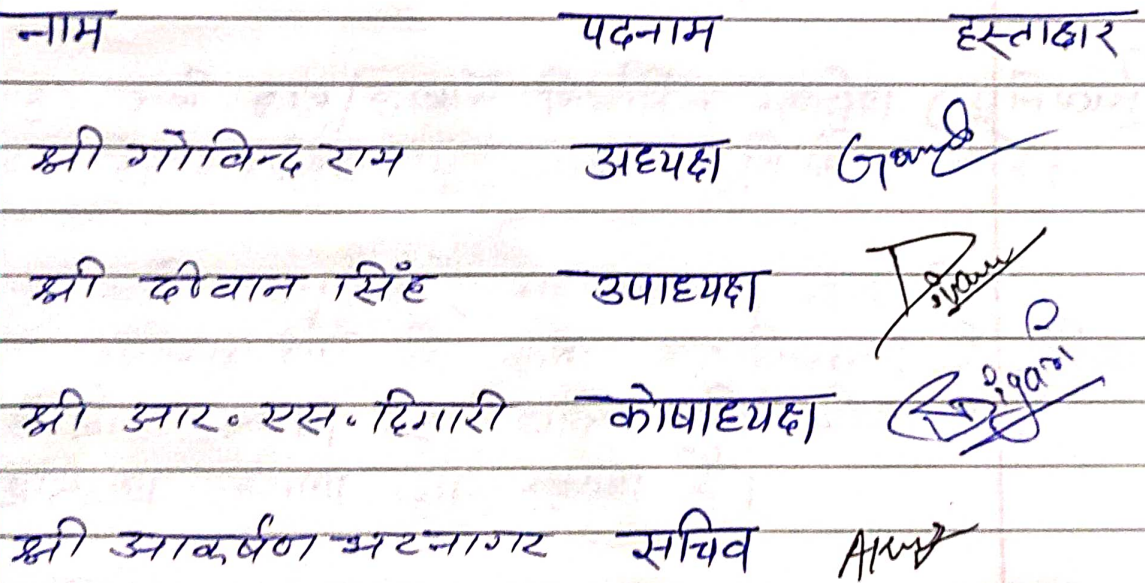 नाम पदनाम हस्ताक्षर
श्री गोविन्द राम अध्यक्ष
श्री दीवान सिंह उपाध्यक्ष
श्री आर. एस. दिगारी कोषाध्यक्ष
श्री आकर्षण भटनागर सचिव